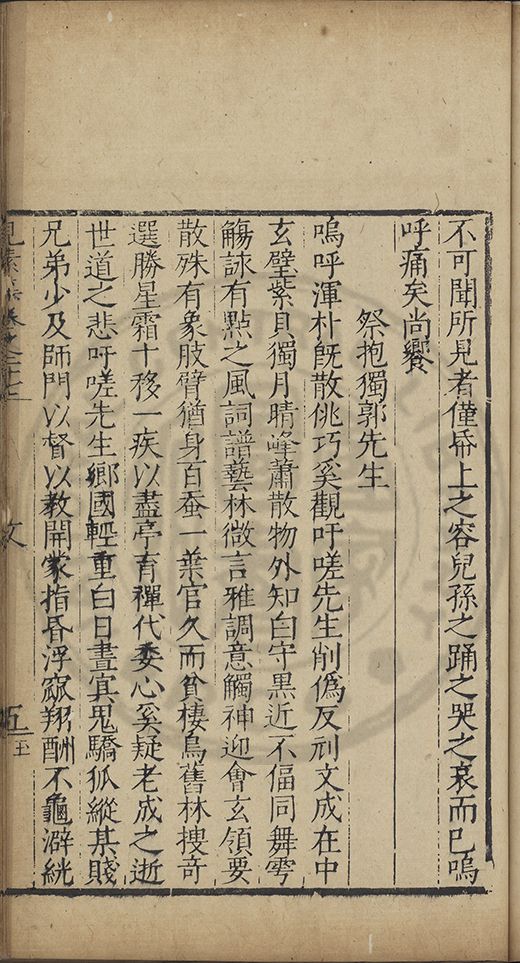 不可聞所見者僅帋上之容兒孫之踊之哭之哀而已嗚
呼痛矣尚饗
祭抱獨郭先生
嗚呼渾朴旣散佻巧奚觀吁嗟先生削僞反刓文成在中
玄璧紫貝獨月晴峰蕭散物外知白守黒近不偪同舞雩
觴詠有㸃之風詞譜藝林微言雅調意觸神迎會玄領要
散殊有象肢臂猶身百蚕一葉官久而貧棲鳥舊林搜奇
選勝星霜十移一疾以盡亭育禪代委心奚疑老成之逝
世道之悲吁嗟先生鄉國輕重白日晝冥鬼驕狐縱某賤
兄弟少及師門以督以教開蒙指昏浮窳翔酬不龜澼絖
文
五